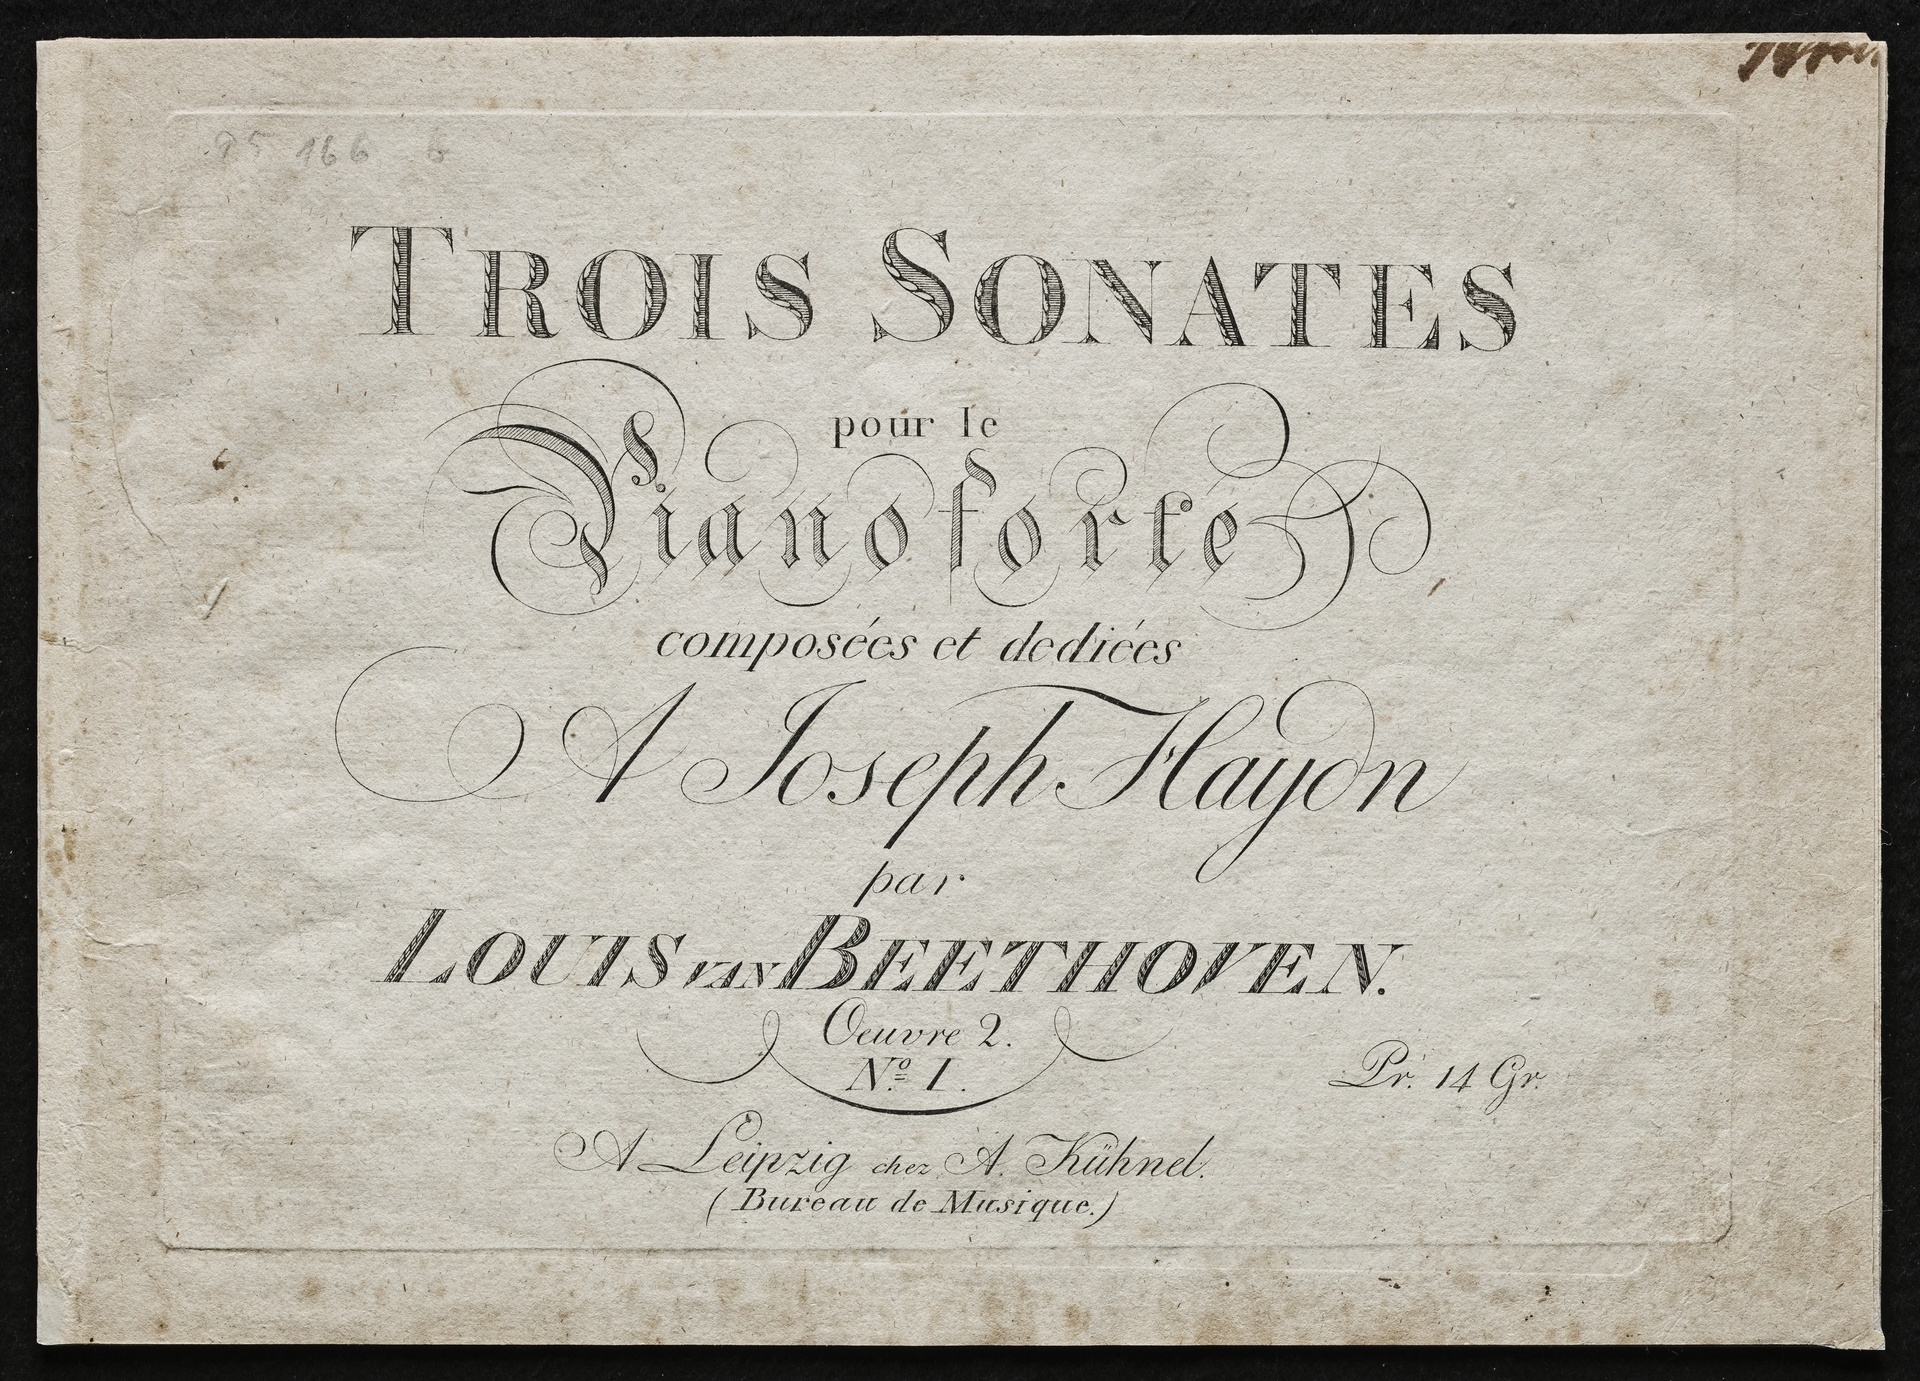 166 6
TROIS SONATES
pour le
Pianoforte
composées et dediées
A Joseph Haydn
par
LOUIS VAN BEETHOVEN.
Oeuvre 2.
No. 1.
Pr. 14 Gr.
A Leipzig chez A. Kühnel.
(Bureau de Musique.)